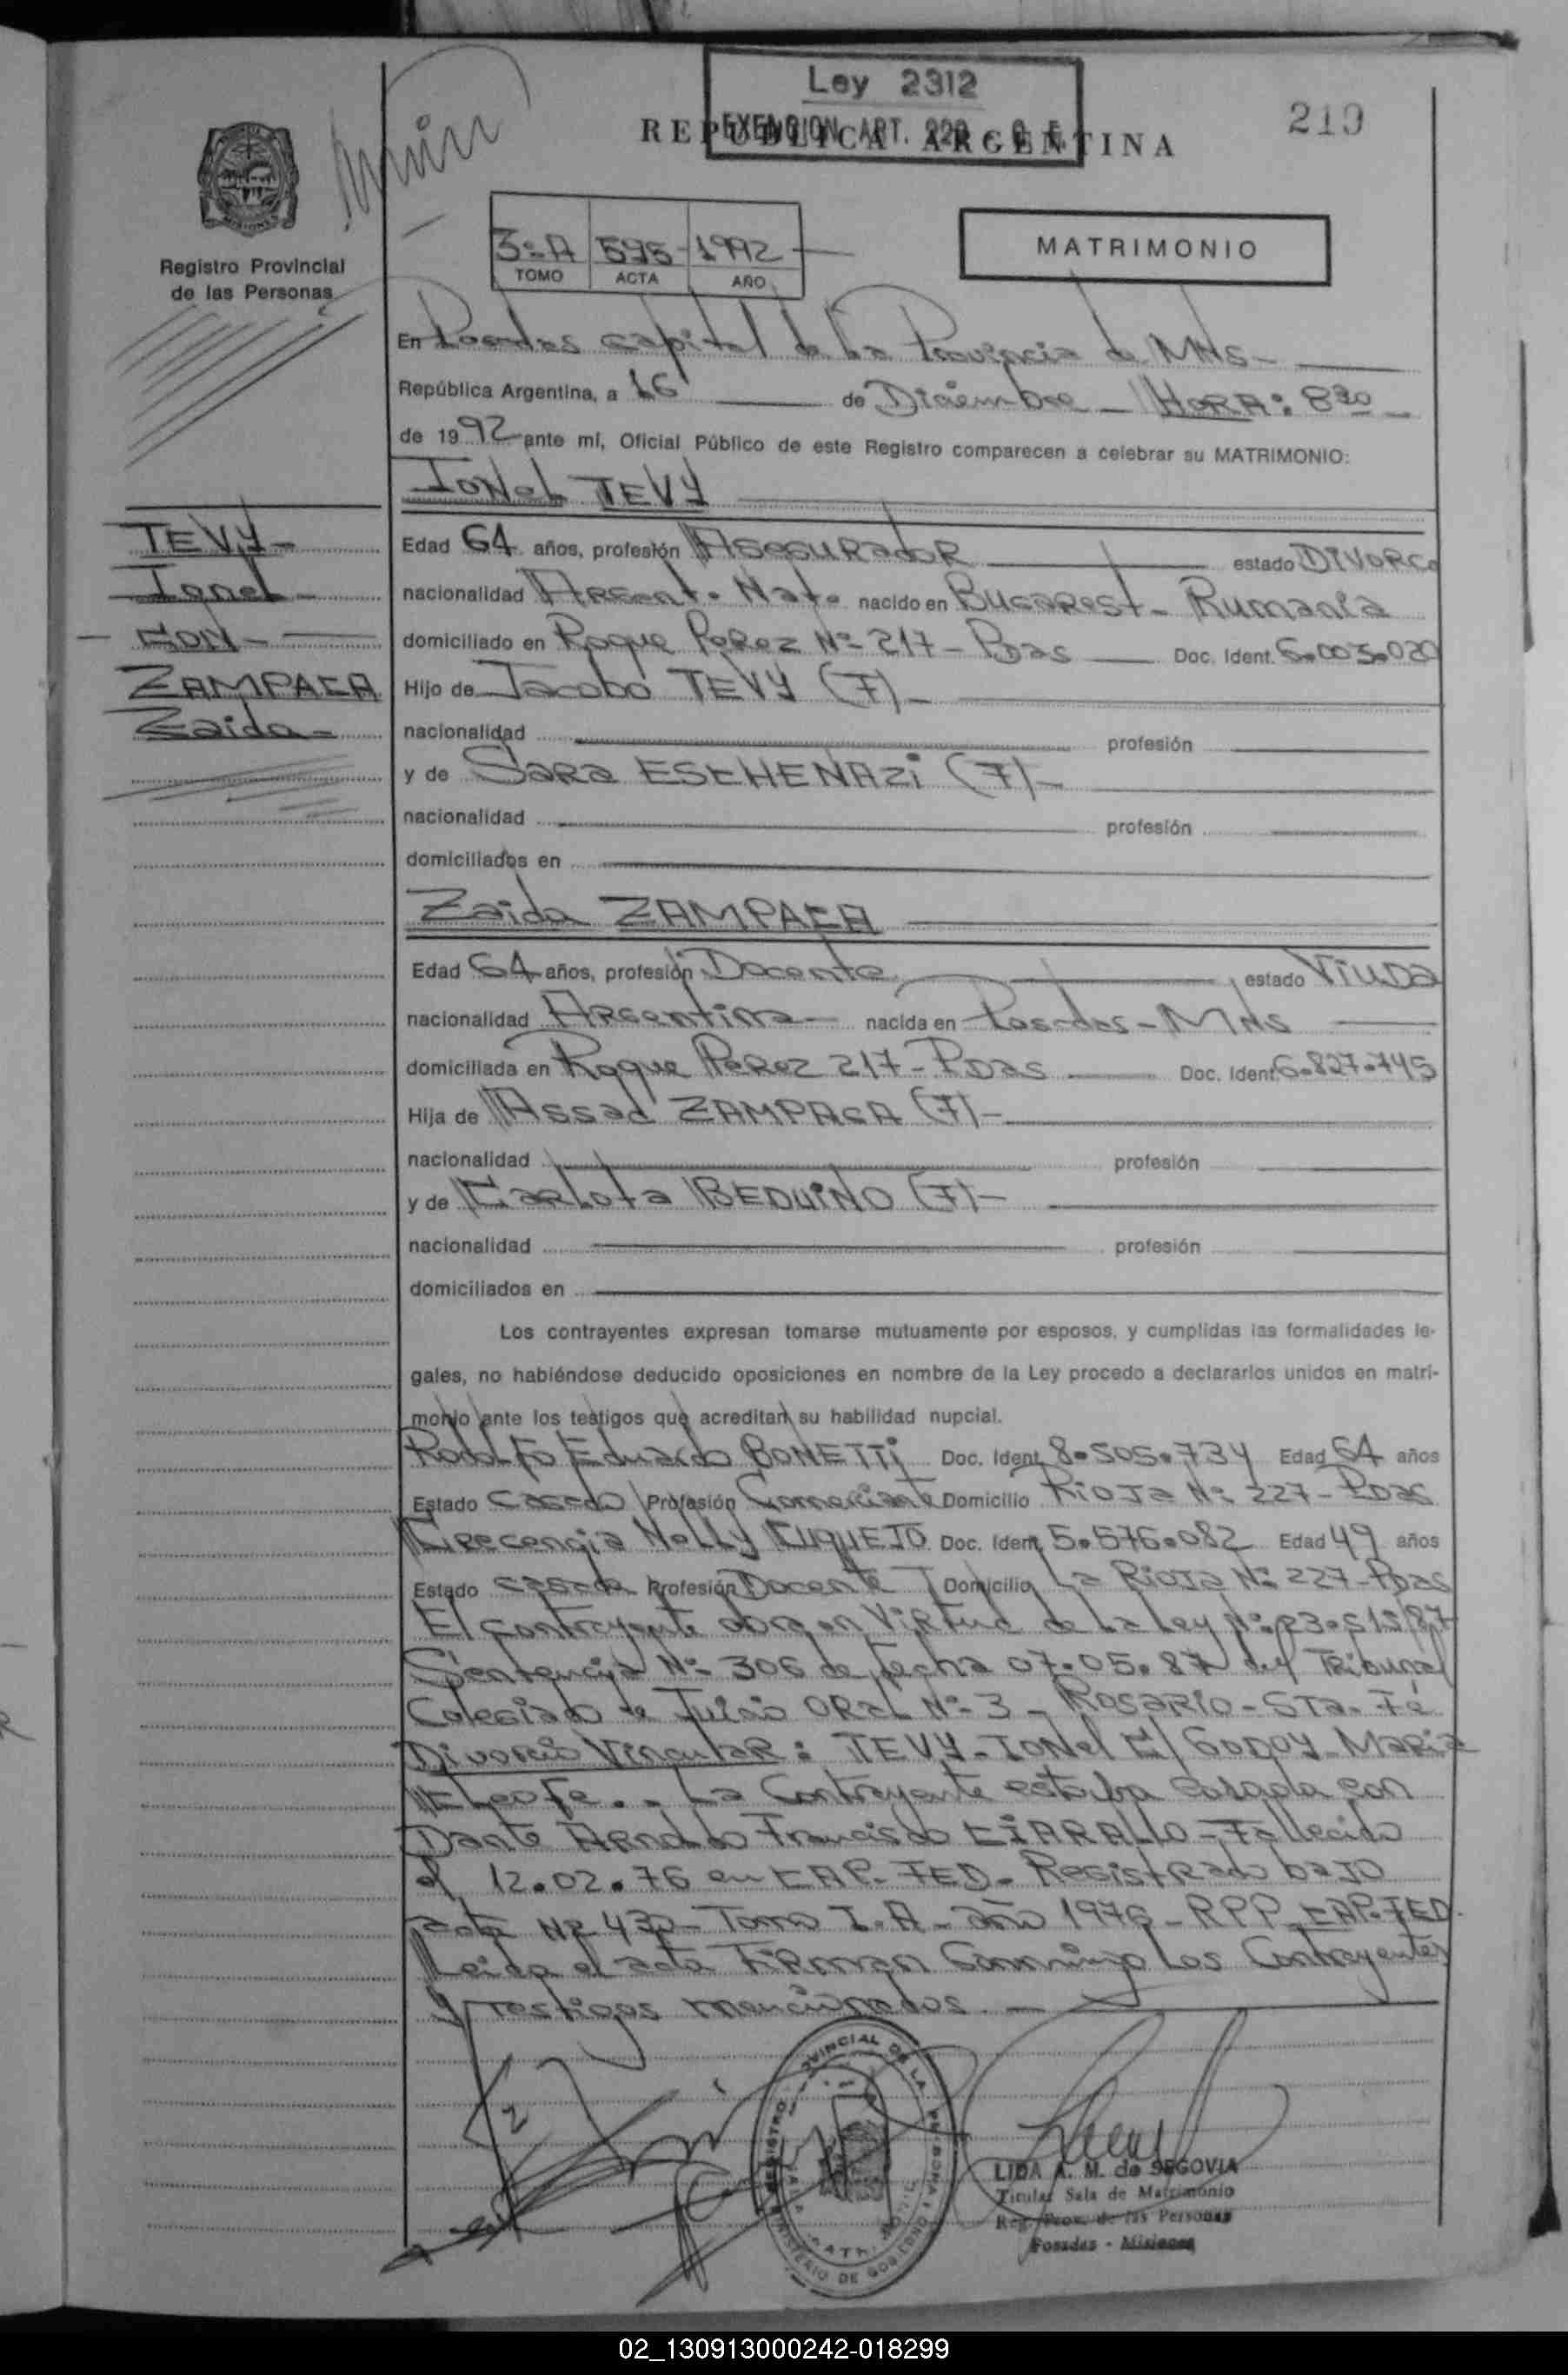 Ley 2312
EXENCION ART.
REPUBLICA ARGENTINA
219
Registro Provincial
de las Personas
3º A 595 1992
TOMO ACTA AÑO
MATRIMONIO
En Posadas capital de la Provincia de Mnes -
República Argentina, a 16 de Diciembre - HORA: 8 30 -
de 1992 ante mí, Oficial Público de este Registro comparecen a celebrar su MATRIMONIO:
IONEL TEVY
TEVY -
Ionel -
CON -
ZAMPACA
Zaida -
Edad 64 años, profesión ASEGURADOR estado DIVORC
nacionalidad Argent. Nat. nacido en BUCAREST - Rumania
domiciliado en Roque Perez Nº 217 - Pdas Doc. Ident. 6.003.020
Hijo de Jacobo TEVY (F) -
nacionalidad profesión
y de SARA ESKHENAZI (F) -
nacionalidad profesión
domiciliados en
Zaida ZAMPACA
Edad 64 años, profesión Docente estado VIUDA
nacionalidad Argentina - nacida en Posadas - Mnes
domiciliada en Roque Perez 217 - Pdas Doc. Ident 6.827.745
Hija de Assad ZAMPACA (F) -
nacionalidad profesión
y de Carlota BEDUINO (F) -
nacionalidad profesión
domiciliados en
Los contrayentes expresan tomarse mutuamente por esposos, y cumplidas las formalidades le-
gales, no habiéndose deducido oposiciones en nombre de la Ley procedo a declararlos unidos en matri-
monio ante los testigos que acreditan su habilidad nupcial.
Rodolfo Eduardo BONETTI Doc. Ident. 8.505.734 Edad 54 años
Estado casado Profesión Comerciante Domicilio Rioja Nº 227 - Pdas
Crecencia Nelly CUQUEJO Doc. Ident. 5.576.082 Edad 49 años
Estado casada Profesión Docente Domicilio La Rioja Nº 227 - Pdas
El contrayente obra en virtud de la Ley Nº 23.515/87
Sentencia Nº 306 de fecha 07.05.87 del Tribunal
Colegiado de Juicio ORAL Nº 3 - ROSARIO - STA. Fé
Divorcio Vincular: TEVY - IONEL C/ GODOY - Maria
Cleofe. - La Contrayente estaba casada con
Dante Arnaldo Francisco CIARALLO - Fallecido
el 12.02.76 en CAP. FED. Registrado bajo
acta Nº 430 - Tomo I. A - año 1976 - RPP. CAP. FED.
Leida el acta Firman Conmigo Los Contrayentes
y Testigos mencionados. -
LIDA A. M. de SEGOVIA
Titular Sala de Matrimonio
Reg. Prov. de las Personas
Posadas - Misiones
02_130913000242-018299